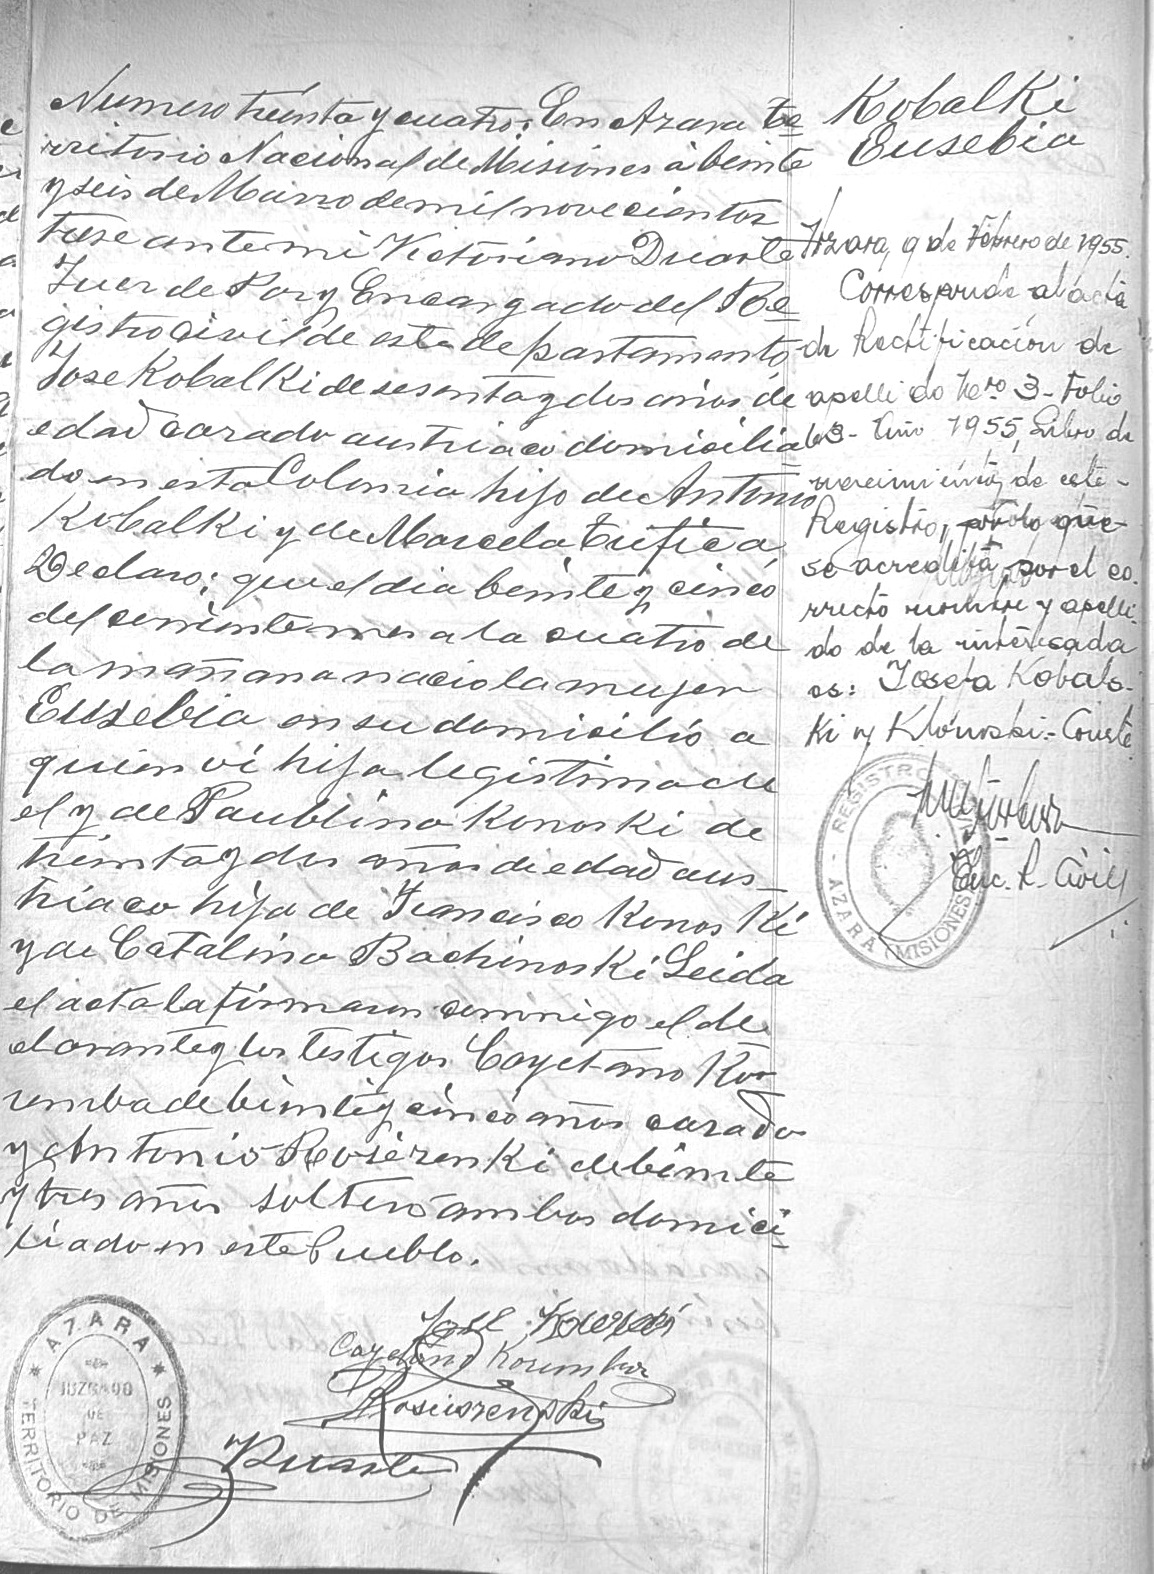 Numero treinta y cuatro: En Azara Te
rritorio Nacional de Misiones à beinte
y seis de Marzo de mil novecientos
trese ante mi Victoriano Duarte
Juez de Paz y Encargado del Re
gistro civil de este departamento,
Jose Kobalki de sesenta y dos años de
edad casado austriaco domicilia
do en esta Colonia hijo de Antonio
Kobalki y de Marcela
Declaro: que el dia beinte y cinco
del corriente mes a la cuatro de
la mañana nacio la mujer
Eusebia en su domicilio a
quien vi hija legitima de
el y de Paublina Konoski de
treinta y dos años de edad aus-
triaca hija de Francisco Konoski
y de Catalina Bachinoski Leida
el acta la firmaron conmigo el de
clarante y los testigos Cayetano Kor
de beinte y cinco años casado
y Antonio de beinte
y tres años soltero ambos domici
liado en este Pueblo.
Jose
Cayetano
Duarte
AZARA
JUZGADO
DE
PAZ
TERRITORIO DE MISIONES
Kobalki
Eusebia
Azara, 9 de Febrero de 1955.
Corresponde al acta
de Rectificación de
apellido Nro 3 - Folio
3 - Año 1955, Libro de
nacimientos de este
Registro, por lo que
se acredita por el co-
rrecto nombre y apelli-
do de la interesada
es: Josefa Kobals-
ki y Klonoski.- Conste
Enc. R. Civil
REGISTRO
AZARA (MISIONES)